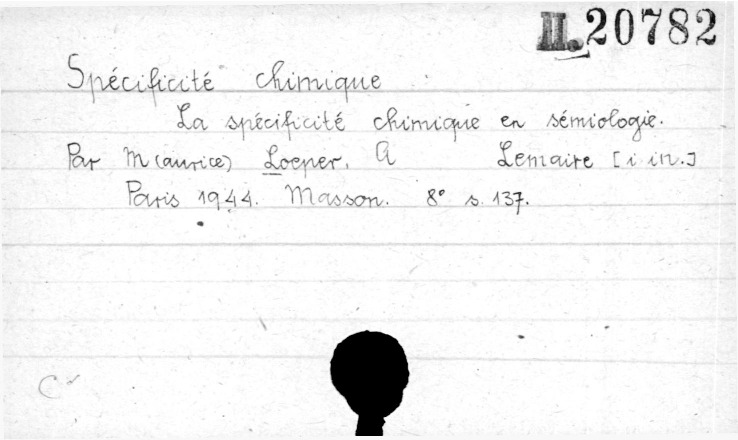 II. 20782
Spécificité chimique
La spécificité chimique en sémiologie.
Par M(aurice) Loeper, A Lemaire [i in.]
Paris 1944. Masson. 8° s. 137.
C